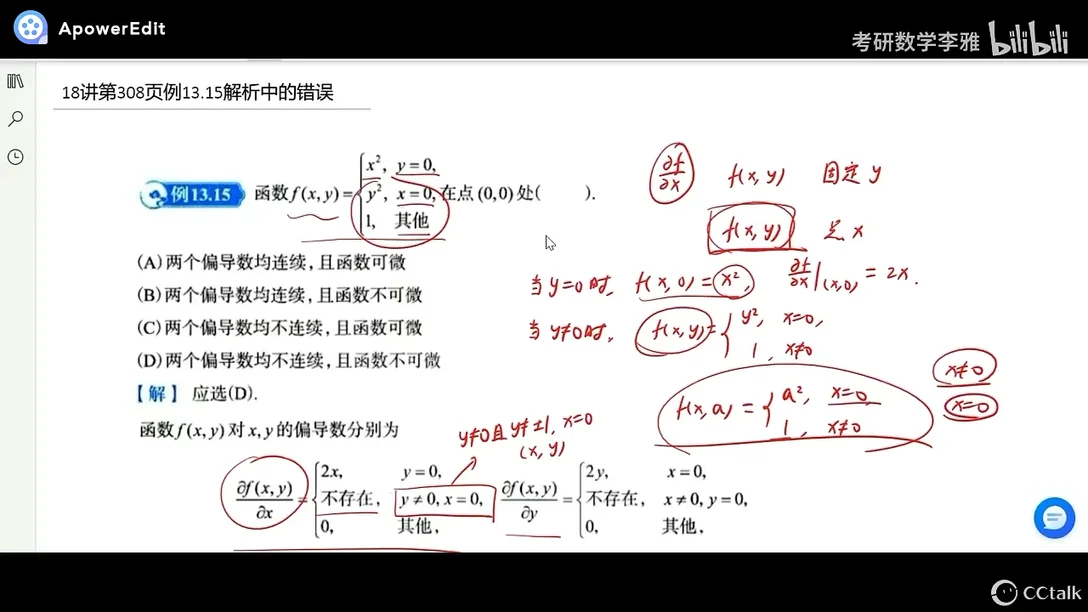 ApowerEdit
考研数学李雅 bilibili
18讲第308页例13.15解析中的错误
例13.15 函数f(x,y)={x², y=0, y², x=0, 1, 其他 在点(0,0)处( ).
(A)两个偏导数均连续,且函数可微
(B)两个偏导数均连续,且函数不可微
(C)两个偏导数均不连续,且函数可微
(D)两个偏导数均不连续,且函数不可微
【解】 应选(D).
函数f(x,y)对x,y的偏导数分别为
∂f(x,y)/∂x={2x, y=0, 不存在, y≠0,x=0, 0, 其他, ∂f(x,y)/∂y={2y, x=0, 不存在, x≠0,y=0, 0, 其他,
∂f/∂x f(x,y) 固定y
f(x,y) 是x
当y=0时, f(x,0)=x², ∂f/∂x|(x,0)=2x.
当y≠0时, f(x,y)={y², x=0, 1, x≠0
x≠0
f(x,a)={a², x=0, 1, x≠0
x=0
y≠0且y≠±1, x=0
(x,y)
CCtalk